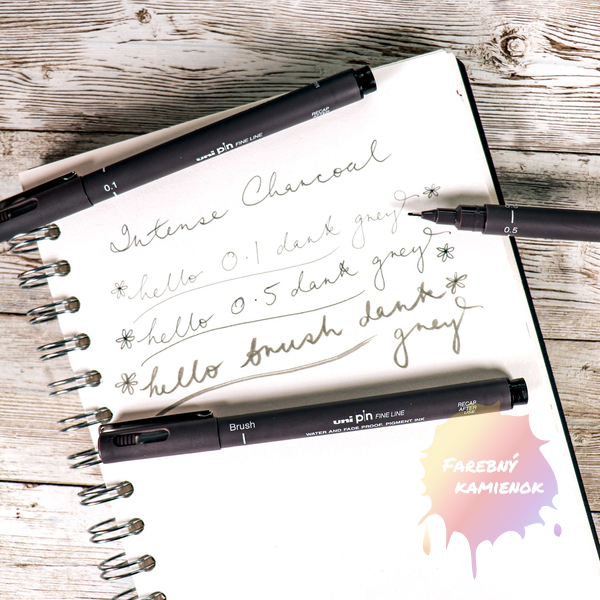 uni pin FINE LINE
RECAP AFTER USE
0.1
Intense Charcoal
hello 0.1 dark grey
0.5
hello 0.5 dark grey
hello brush dark grey
Brush
uni pin FINE LINE
WATER AND FADE PROOF, PIGMENT INK
RECAP AFTER USE
FAREBNÝ
KAMIENOK